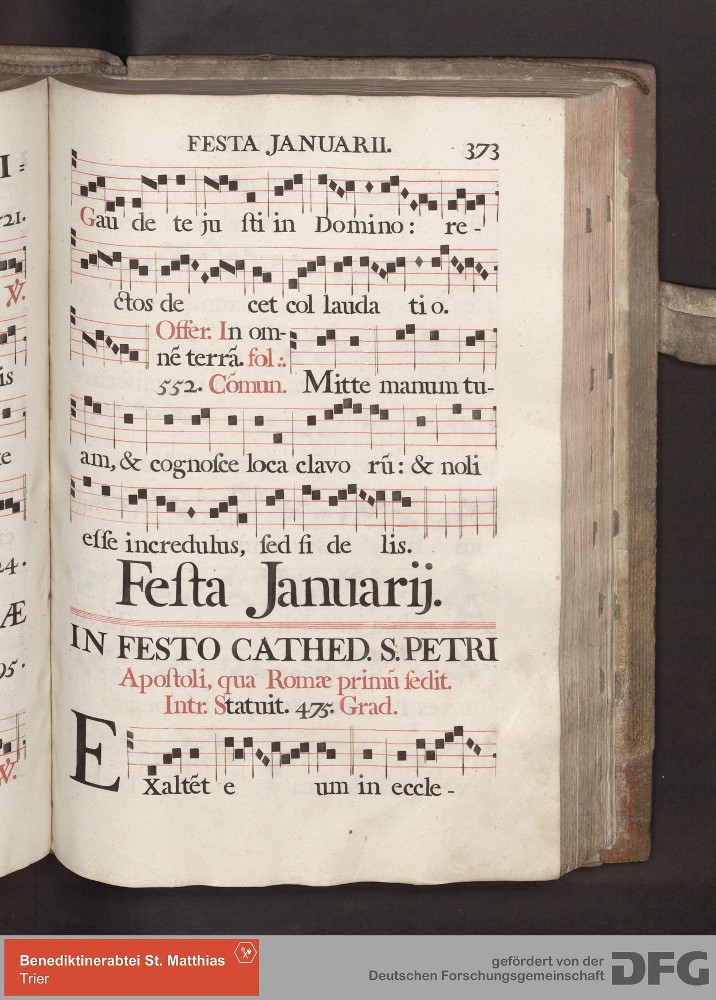 FESTA JANUARII. 373
Gau de te ju ſti in Domino: re-
ctos de cet col lauda ti o.
Offer. In om-
nē terrā. fol.:
552. Cōmun. Mitte manum tu-
am, & cognoſce loca clavo rū: & noli
eſſe incredulus, ſed fi de lis.
Feſta Januarij.
IN FESTO CATHED. S. PETRI
Apoſtoli, qua Romæ primū ſedit.
Intr. Statuit. 475. Grad.
Exaltēt e um in eccle-
I
721.
℣.
is
te
24.
Æ
95.
℣.
Benediktinerabtei St. Matthias
Trier
gefördert von der
Deutschen Forschungsgemeinschaft
DFG